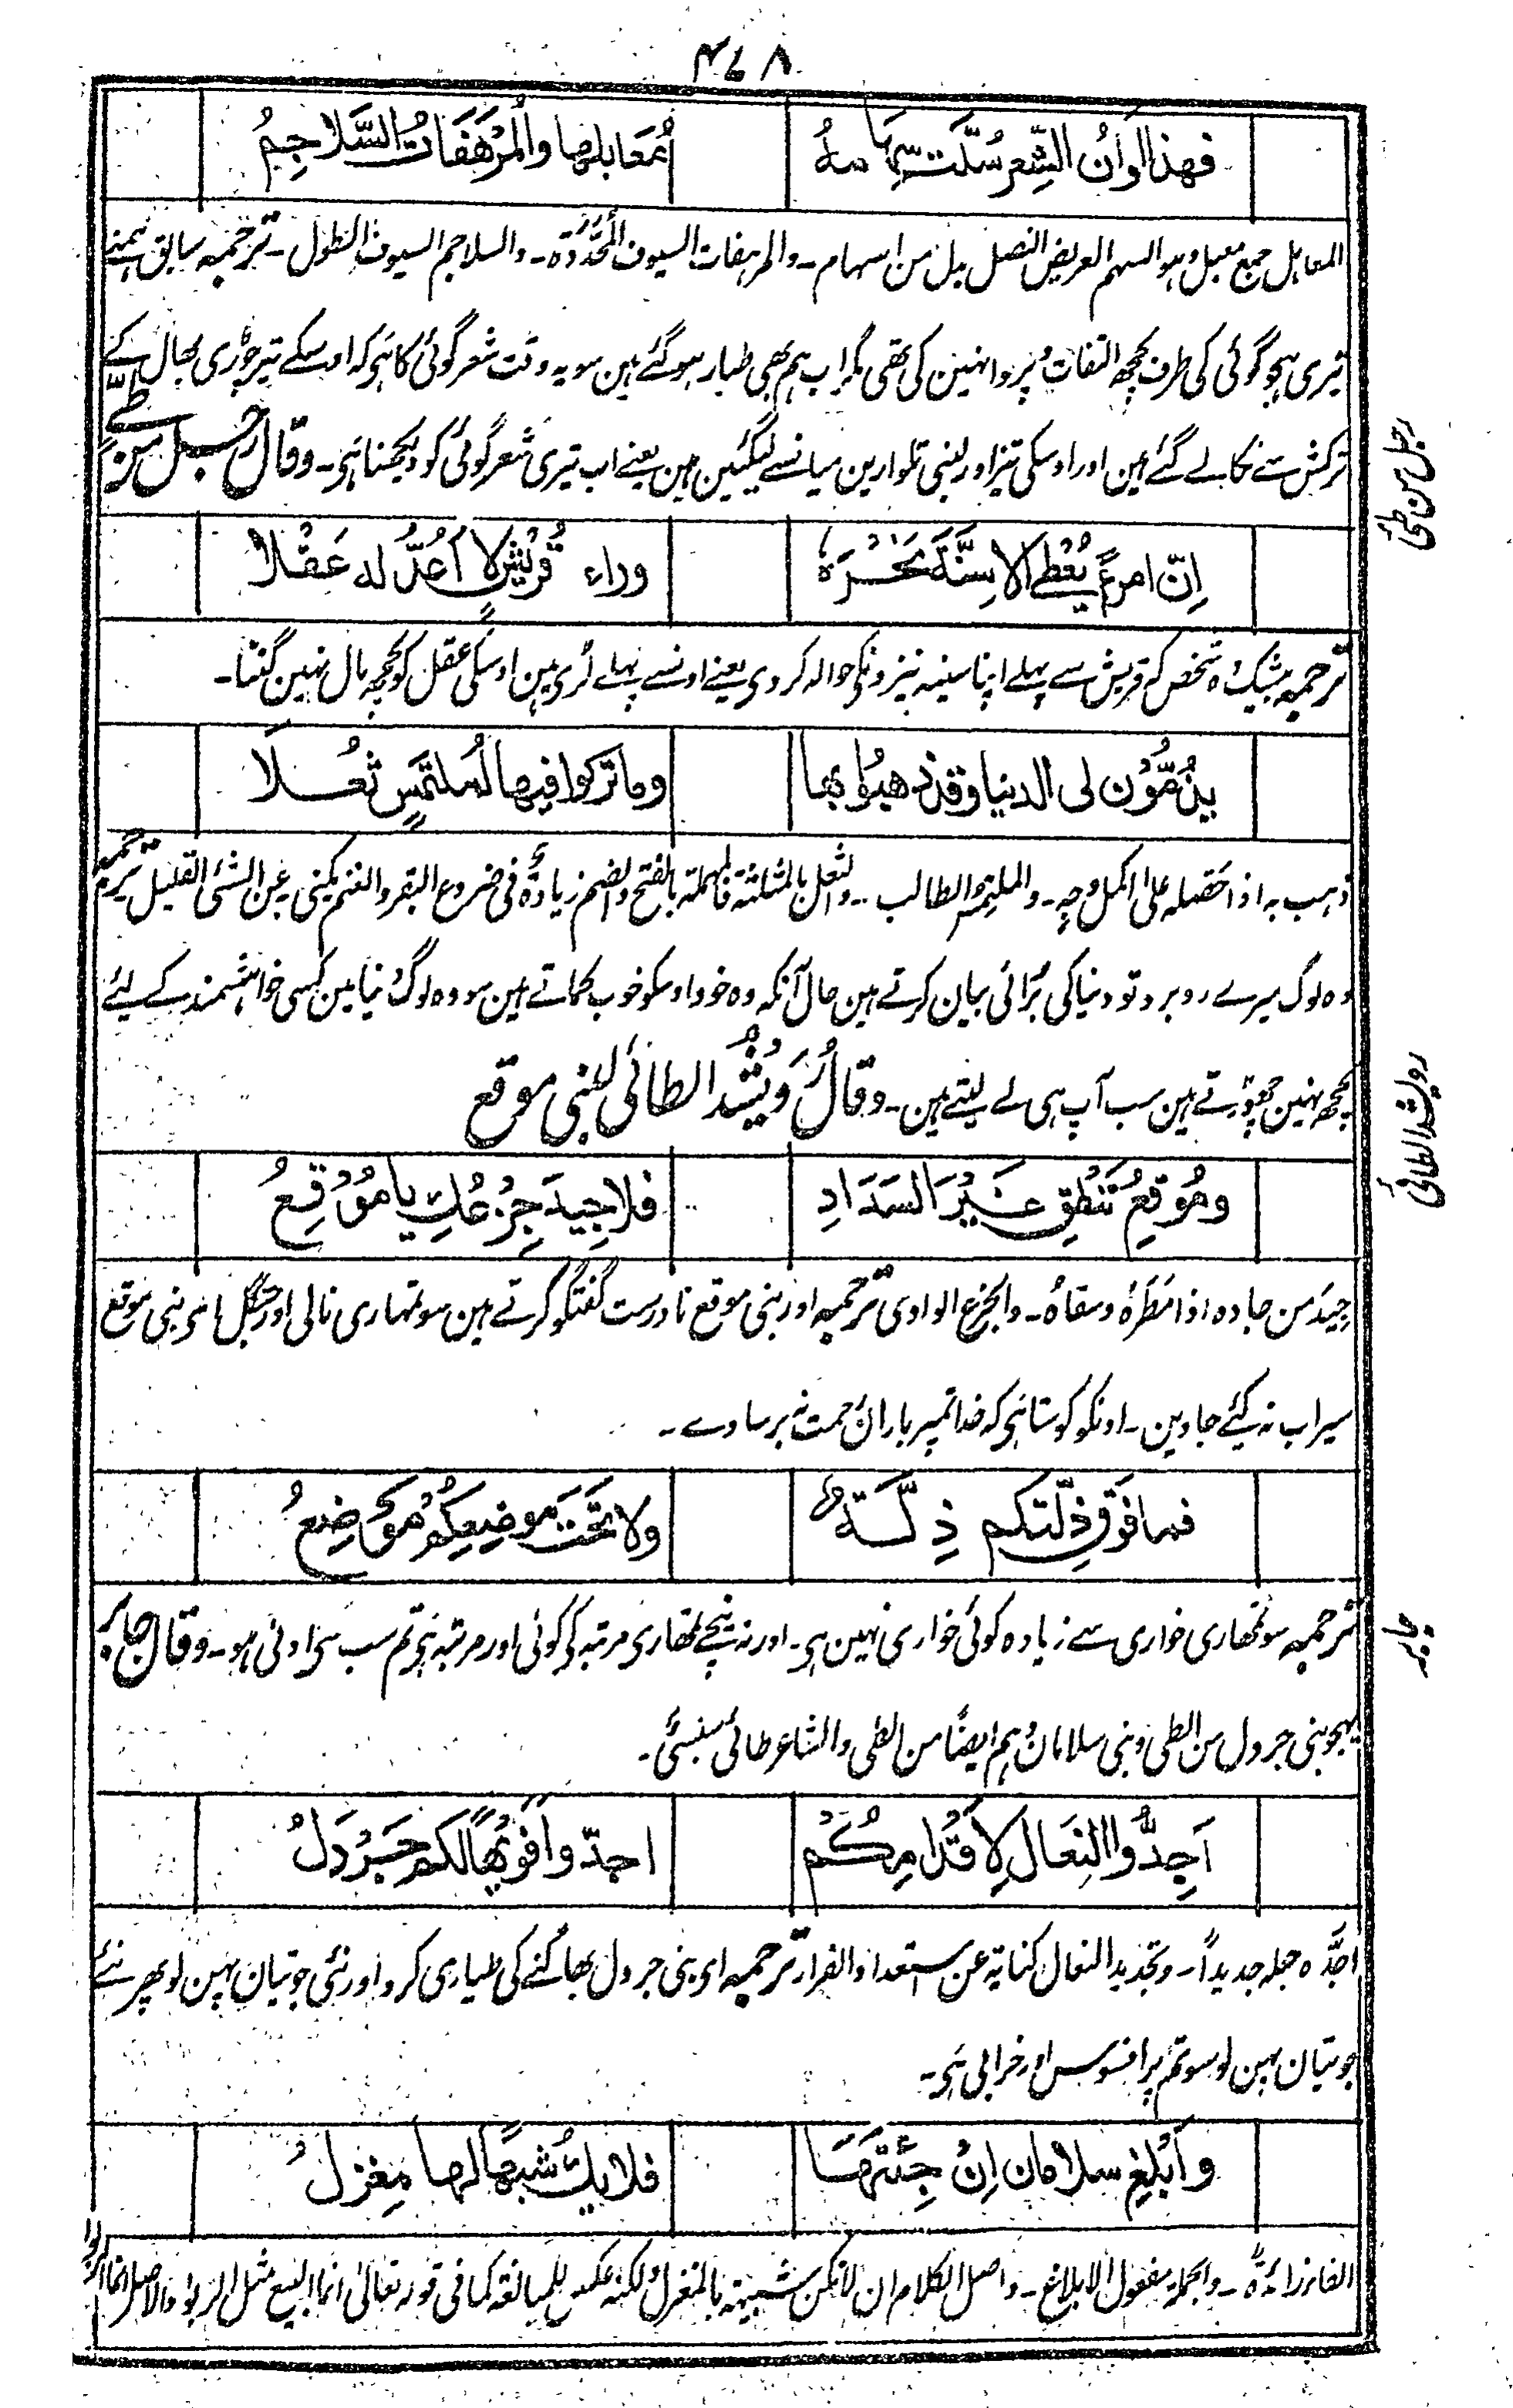 ۴۷۸
فهذا اَوَانُ الشِّعر سُلَّت سِهَامه اَمَعَابلها والمُرْهَفَاتُ السَّلاجِمُ
المعابل جمع معبل وہو السہم العریض النصل بدل من اسہام۔ والمرہفات السیوف المُحَدَّدَۃ۔ والسلاجم السیوف الطول۔ ترجمہ سابق ہمنے
تیری ہجو گوئی کی طرف کچھ التفات وپروا نہین کی تھی مگر اب ہم بھی طیار ہوگئے ہین سو یہ وقت شعر گوئی کا ہی کہ اوسکے تیر چوڑی بھال کے
ترکش سے نکالے گئے ہین اور اوسکی تیز اور لنبی تلوارین میانسے لیگئین ہین یعنے اب تیری شعر گوئی کو دیکھنا ہی۔ وقال رجل من طَیّٔ
رجل من طئ
اِنّ امرءً يُعْطِي الاسِنَّةَ نَحْرَهُ وراء قُرَيْشٍ لا اَعُدُّ له عَقْلا
ترجمہ بیشک وہ شخص کہ قریش سے پہلے اپنا سینہ نیزونکی حوالہ کردی یعنے اونسے پہلے لڑی مین اوسکی عقل کو کچھ مال نہین گنتا۔
يَذُمُّوْن لى الدنيا وقد ذهبُوا بها وما تركوا فيها لمُلتمِسٍ ثُعْلَا
ذہب بہ اذا حَصَّلہ علی اکمل وجہ۔ والملتمس الطالب۔ والثعل بالمثلثۃ فالمہملۃ بالفتح والضم زیادۃ فی ضروع البقر والغنم یکنی بہ عن الشئ القلیل ترجمہ
وہ لوگ میرے روبرو تو دنیا کی بُرائی بیان کرتے ہین حال آنکہ وہ خود اوسکو خوب کماتے ہین سو وہ لوگ دنیا مین کسی خواہشمند کے لیئے
کچھ نہین چھوڑتے ہین سب آپ ہی لے لیتے ہین۔ وقال رُوَیْشُد الطائی لبنی موقع
رویشد الطائی
ومُوقعُ تَنْطِق غَيْرَ السَدَادِ فلا جِيدَ جِزْعُكِ يا مُوْقِعُ
جِیدَ من جادہ اذا مَطَرَہُ وسقاہُ۔ والجزع الوادی ترجمہ اور بنی موقع نادرست گفتگو کرتے ہین سو تمہاری نالی اور جنگل ای بنی موقع
سیراب نہ کیئے جاوین۔ اونکو کوستا ہی کہ خدا تمپر باران رحمت نہ برساوے۔
فما فوق ذِلّتكم ذِلَّةٌ ولا تَحْتَ مَوضِعِكُم مَوْضِعُ
ترجمہ سو تمھاری خواری سے زیادہ کوئی خواری نہین ہی۔ اور نہ نیچے تمھاری مرتبہ کی کوئی اور مرتبہ ہی تم سب سی ادنی ہو۔ وقال جابر
جابر
یہجو بنی جرول من الطی وبنی سلامان وہم ایضًا من الطی والشاعر طائی سنبسیُّ۔
اَجِدُّوا النعَال لاَقْدَامِكُمْ اجدّوا فَوَيْهًا لكم جَرْوَلُ
اَجَدَّہ جعلہ جدیداً۔ وتجدید النعال کنایۃ عن استعداد الفرار ترجمہ ای بنی جرول بھاگنے کی طیاری کرو اور نئی جوتیان پہن لو پھر نئے
جوتیان پہن لو سو تم پر افسوس اور خرابی ہی۔
واَبْلِغ سلامان اِنْ جِئتَهَا فلا يكُ شبهًا لها مِغزلُ
الفاء زائدۃ۔ والجملۃ مفعول الابلاغ۔ واصل الکلام ان لا تکن شبیہتہ بالمغزل ولکنہ عکس للمبالغۃ کما فی قولہ تعالیٰ انما البیع مثل الربوا والاصل انما الربوا